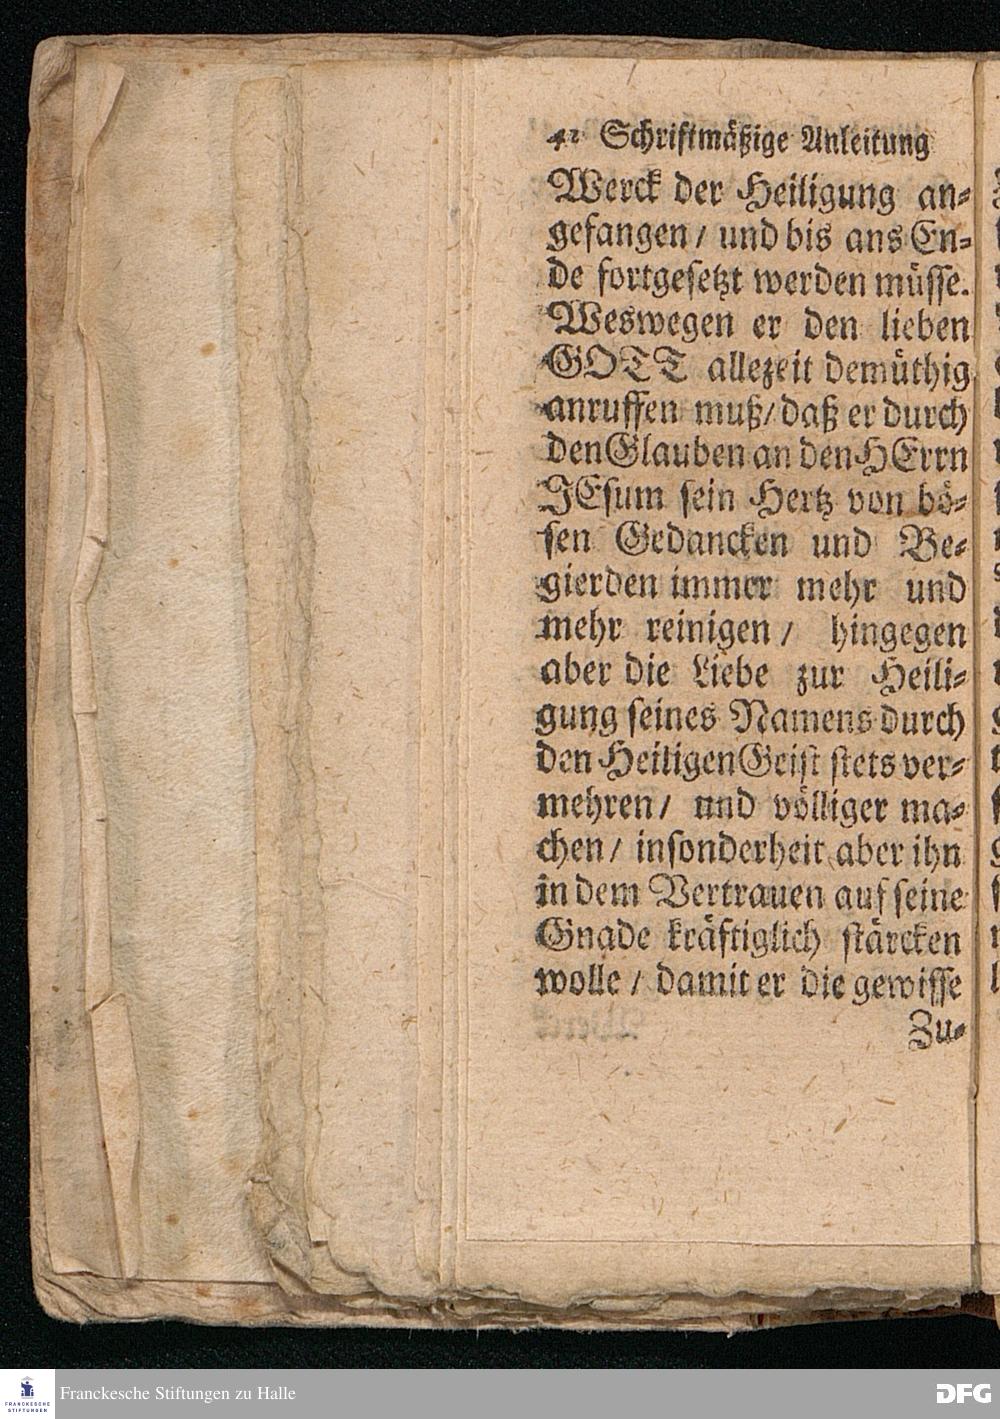 42 Schriftmäßige Anleitung
Werck der Heiligung an-
gefangen / und bis ans En-
de fortgesetzt werden müsse.
Weswegen er den lieben
GOTT allezeit demüthig
anruffen muß / daß er durch
den Glauben an den HErrn
JEsum sein Hertz von bö-
sen Gedancken und Be-
gierden immer mehr und
mehr reinigen / hingegen
aber die Liebe zur Heili-
gung seines Namens durch
den Heiligen Geist stets ver-
mehren / und völliger ma-
chen / insonderheit aber ihn
in dem Vertrauen auf seine
Gnade kräftiglich stärcken
wolle / damit er die gewisse
Zu-
FRANCKESCHE
STIFTUNGEN
Franckesche Stiftungen zu Halle
DFG